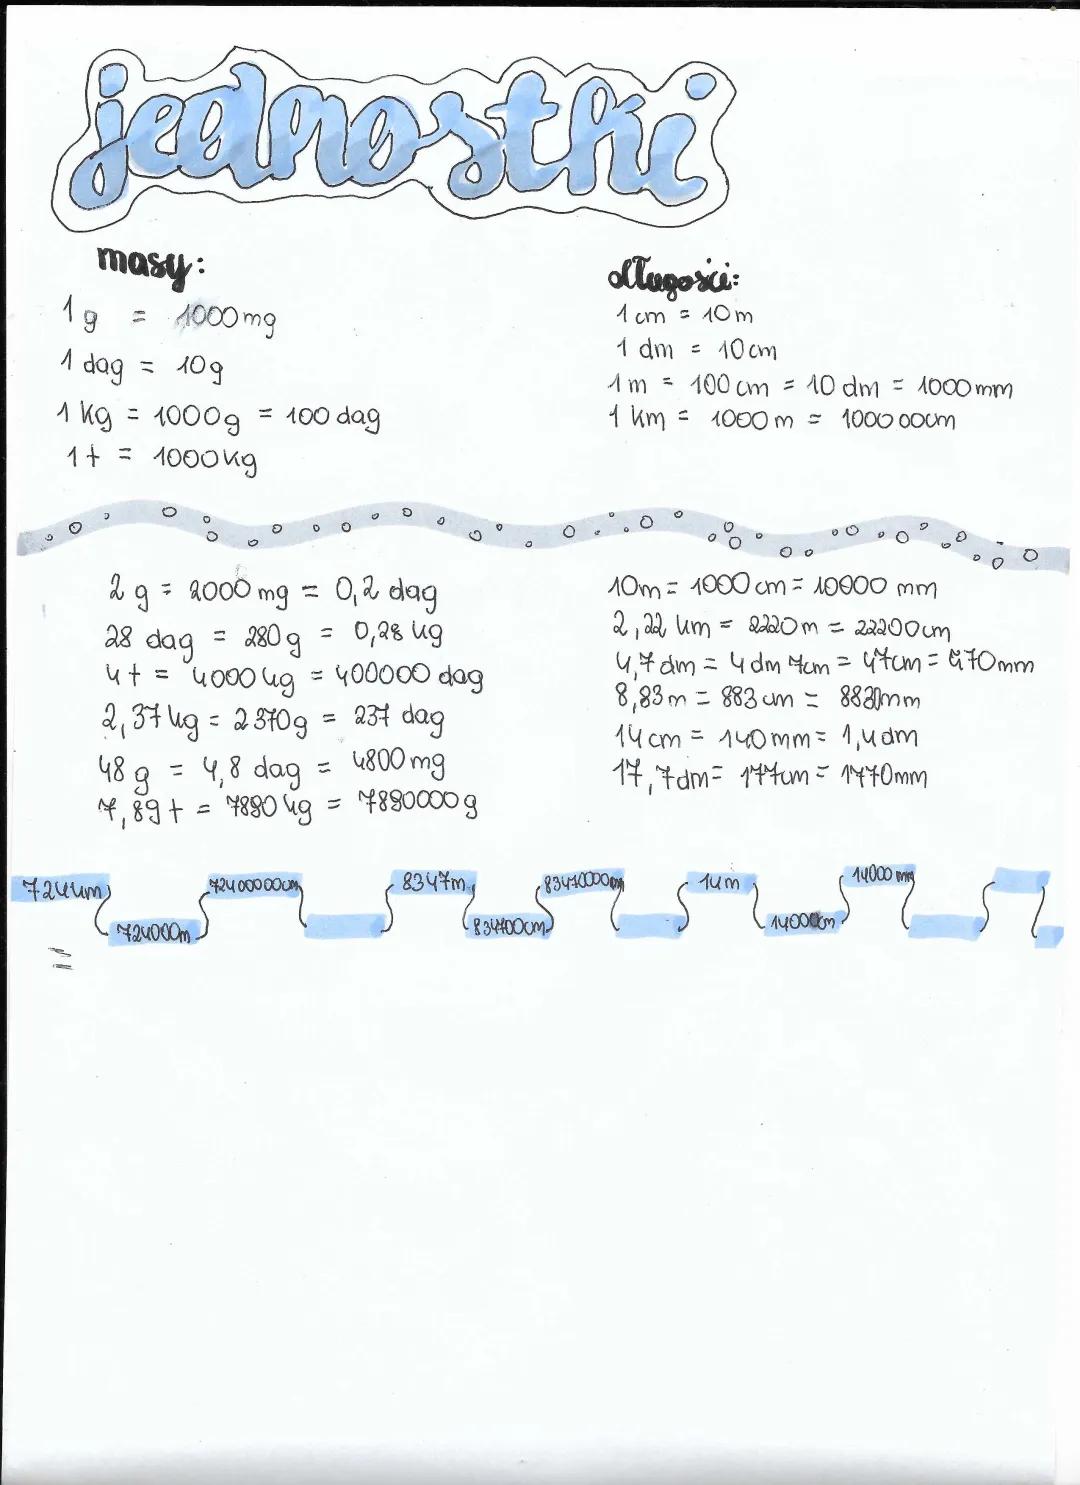 jednostki
masy:
1 g = 1000 mg
1 dag = 10 g
1 kg = 1000 g = 100 dag
1 t = 1000 kg
długości:
1 cm = 10 m
1 dm = 10 cm
1 m = 100 cm = 10 dm = 1000 mm
1 km = 1000 m = 100000cm
2 g = 2000 mg = 0,2 dag
28 dag = 280 g = 0,28 kg
4 t = 4000 kg = 400000 dag
2,37 kg = 2370g = 237 dag
48 g = 4,8 dag = 4800 mg
7,89 t = 7880 kg = 7880000 g
10m = 1000 cm = 10000 mm
2,22 km = 2220m = 22200cm
4,7 dm = 4 dm 7cm = 47cm = 470mm
8,83 m = 883 cm = 8830mm
14 cm = 140 mm = 1,4 dm
17,7 dm = 177cm = 1770mm
724km 72400000cm 8347m 83470000mm 14m 14000 mm
724000m 834700cm